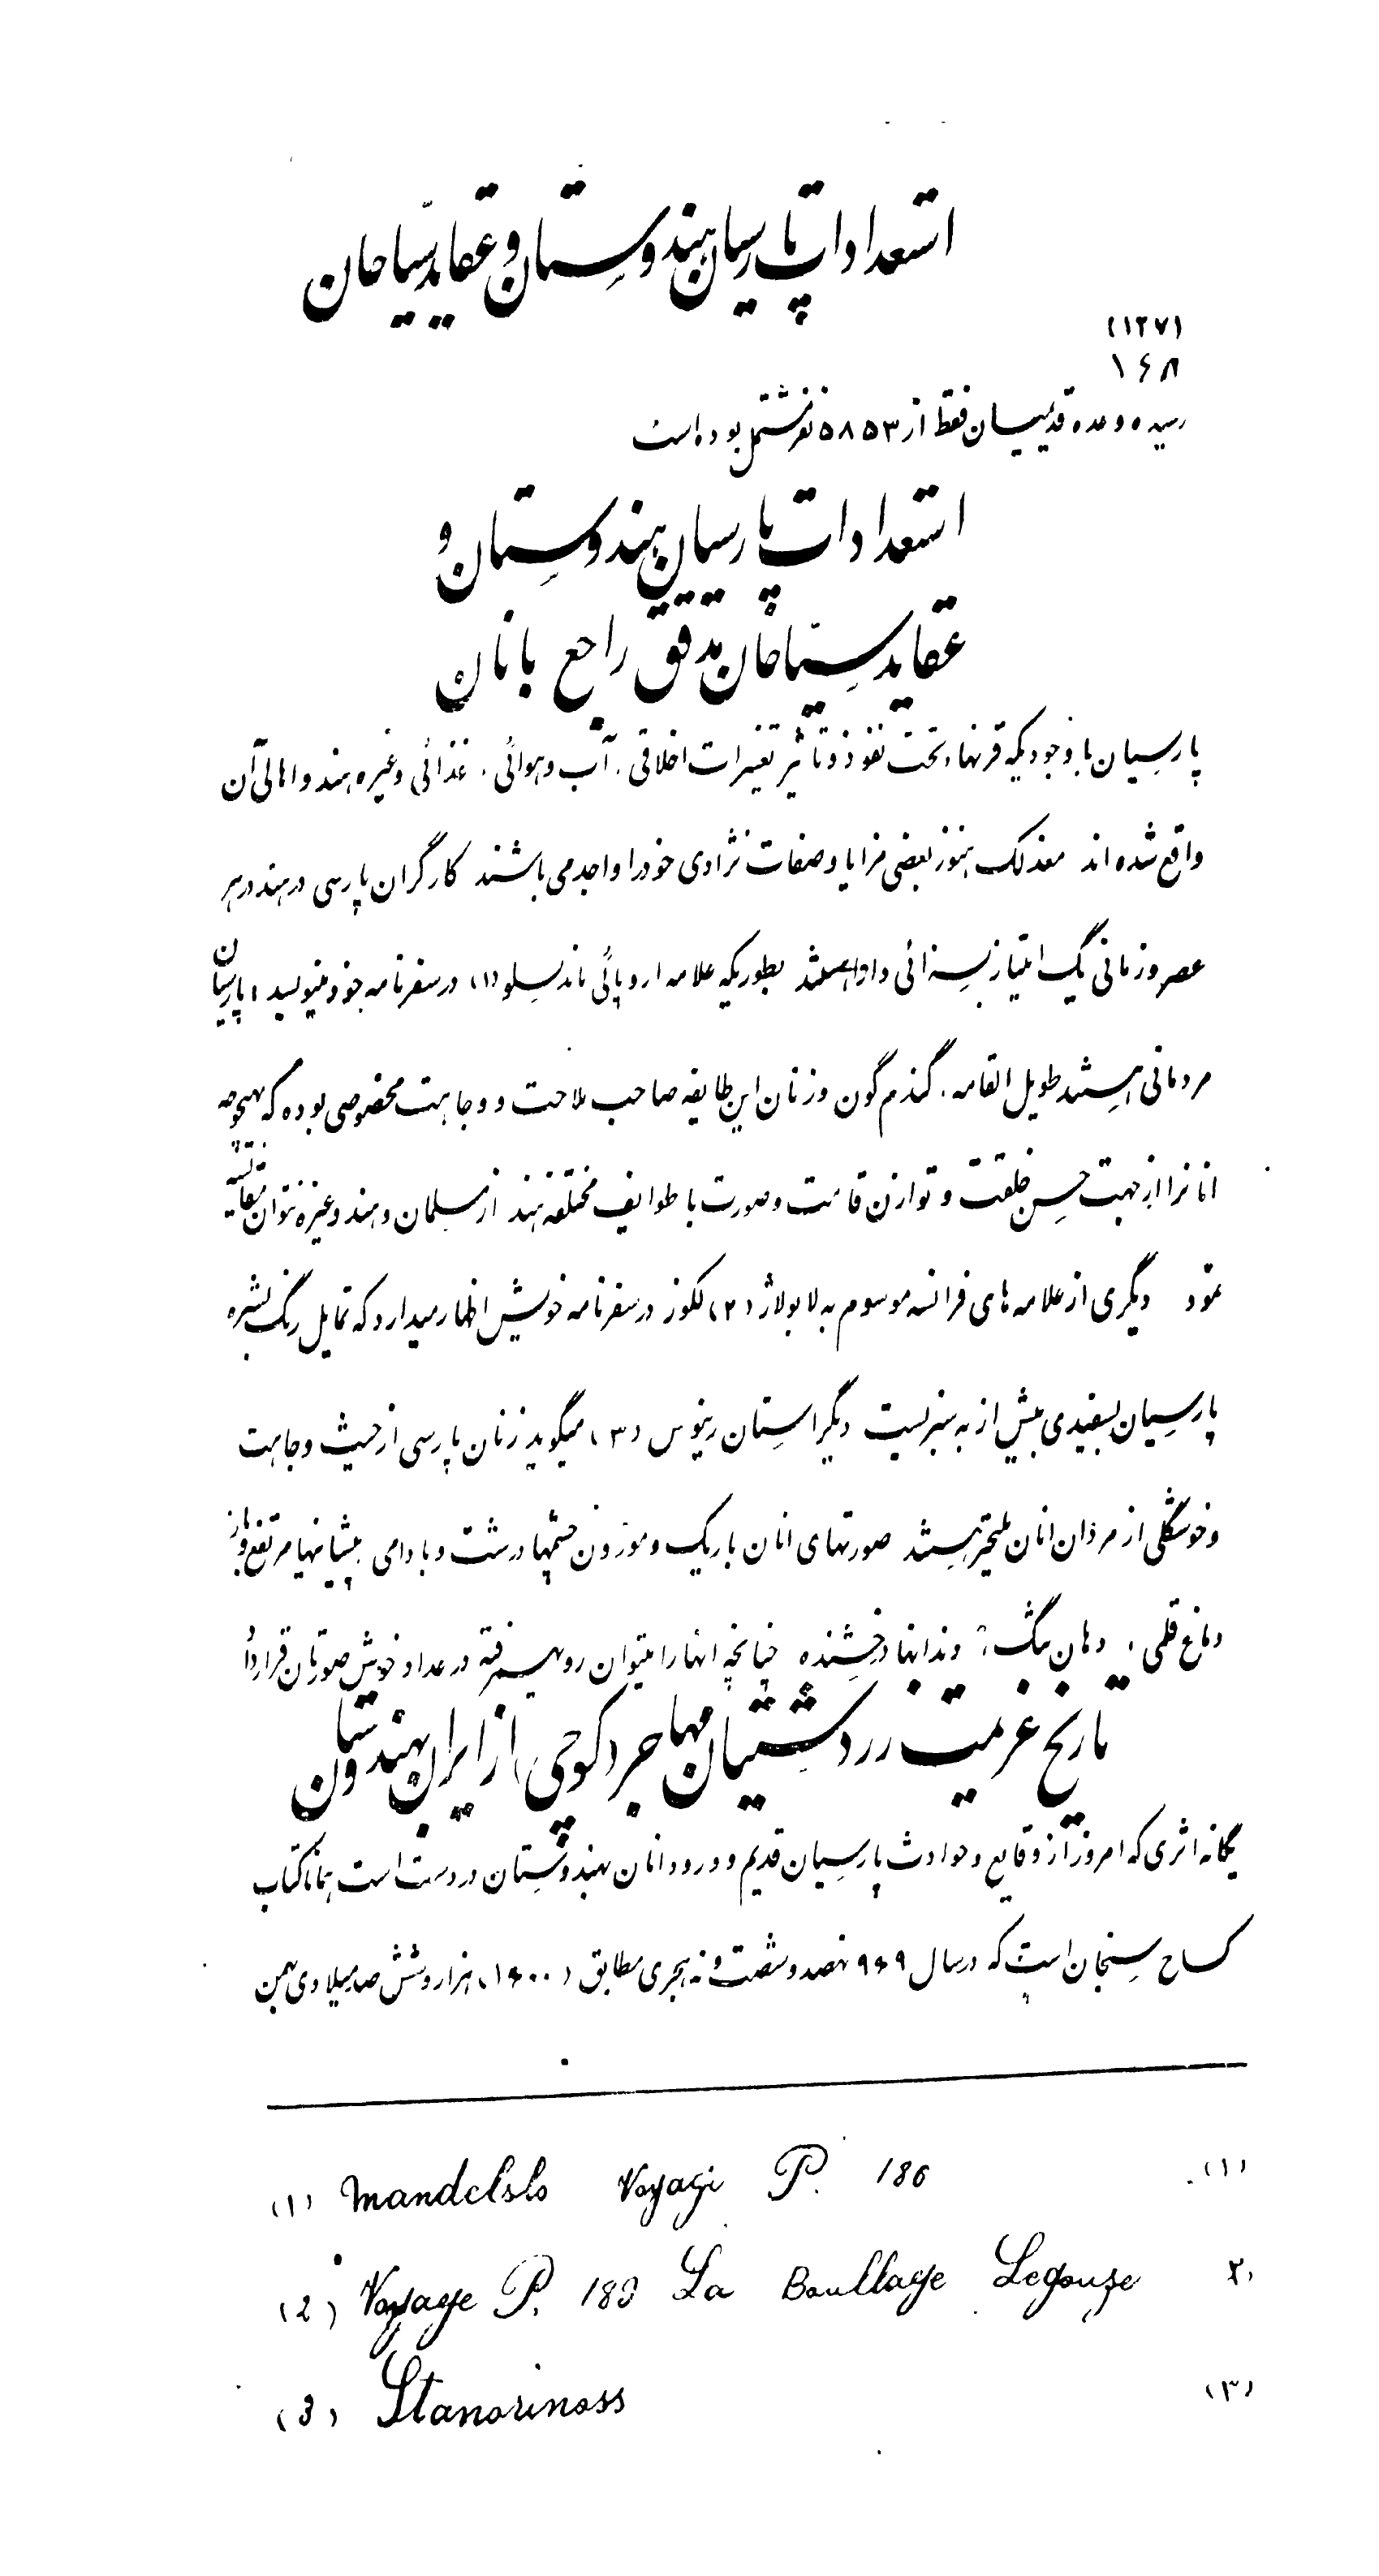 استعدادات پارسیان هندوستان و عقاید سیاحان
(۱۲۷)
۱۶۸
رسیده و عده قدیمیان فقط از ۵۸۵۳ نفر مشتمل بوده است
استعدادات پارسیان هندوستان و
عقاید سیاحان مدقق راجع بانان
پارسیان با وجودیکه قرنها، تحت نفوذ و تأثیر تغییرات اخلاقی. آب و هوائی. غذائی و غیره هند و اهالی آن
واقع شده اند معذلک هنوز بعضی مزایا و صفات نژادی خود را واجد می باشند کارگران پارسی در هند در هر
عصر و زمانی یک امتیاز بسزائی دارا هستند بطوریکه علامه اروپائی ماندلسلو (۱) در سفرنامه خود مینویسد، پارسیان
مردمانی هستند طویل القامه. گندم گون و زنان این طایفه صاحب ملاحت و وجاهت مخصوصی بوده که بهیچوجه
انانرا از جهت حسن خلقت و توازن قامت و صورت با طوایف مختلفه هند از مسلمان و هند و غیره نتوان مقایسه
نمود دیگری از علامه های فرانسه موسوم به لابولاژ (۲) لگوز در سفرنامه خویش اظهار میدارد که تمایل رنگ بشره
پارسیان بسفیدی بیش از به سبزیست دیگر استان رینوس (۳) میگوید زنان پارسی از حیث وجاهت
و خوشگلی از مردان انان ملیحتر هستند صورتهای انان باریک و موزون چشمها درشت و بادامی پیشانیها مرتفع و باز
دماغ قلمی، دهان تنگ، و دندانها درخشنده چنانچه انها را میتوان رویهمرفته در عداد خوش صورتان قرار داد
تاریخ عزیمت زردشتیان مهاجر (کوچی) از ایران بهندوستان
یگانه اثری که امروز از وقایع و حوادث پارسیان قدیم و ورود انان بهندوستان در دست است همانا کتاب
سنجان است که در سال ۹۶۹ نهصد و شصت و نه هجری مطابق (۱۶۰۰) هزار و شش صد میلادی بهمن
(۱) Mandelslo Voyagi P. 186 (۱)
(2) Voyage P. 189 La Boullaye Legouze ۲)
(3) Stanorinoss (۳)